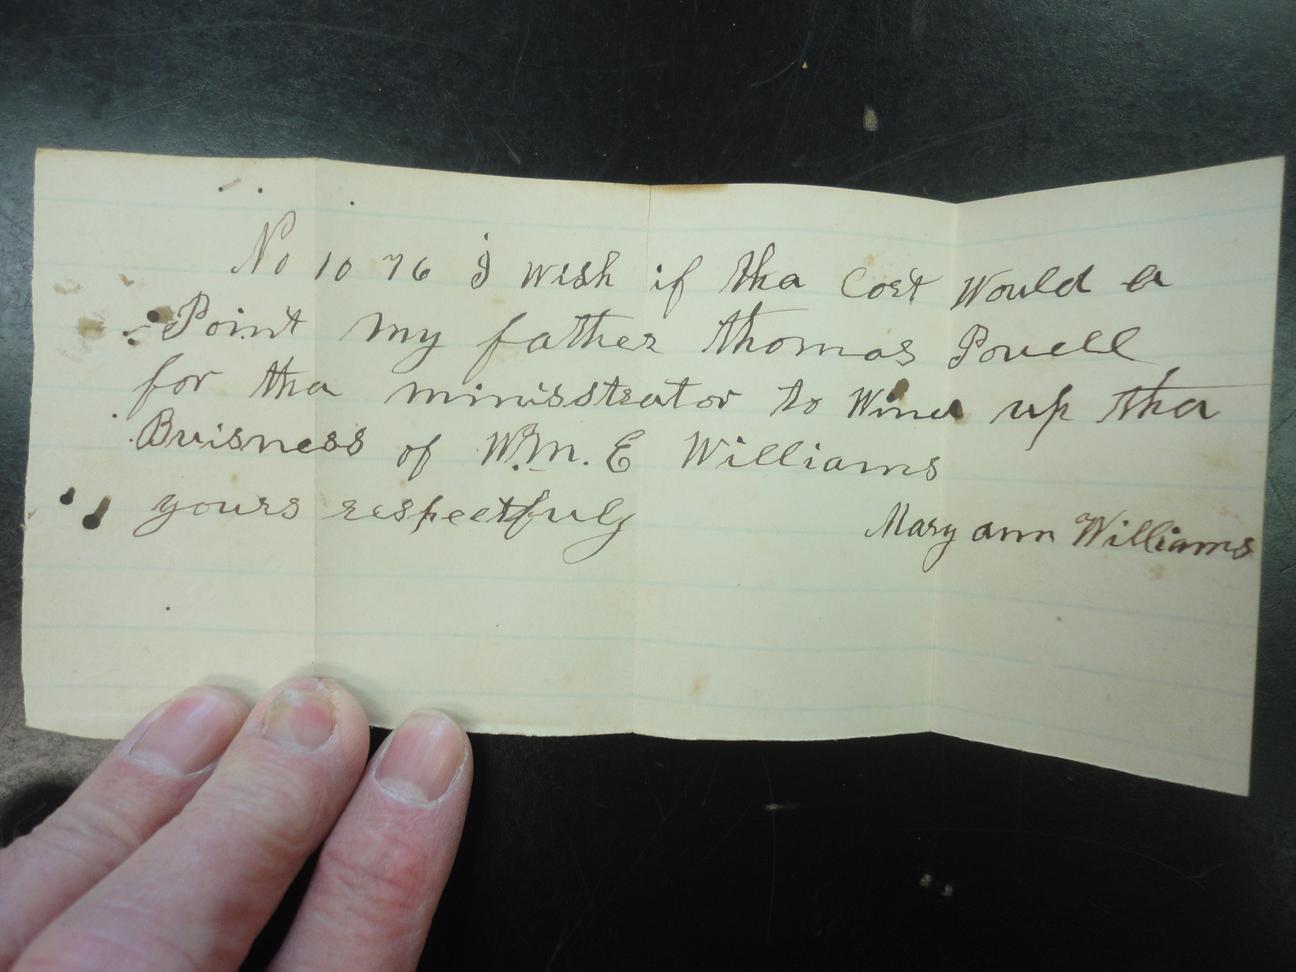 No 10 76 I wish if tha Cort Would a
Point my father thomas Powell
for tha minisstrator to Wind up tha
Buisness of Wm. E Williams
yours respectfuly
Mary ann Williams